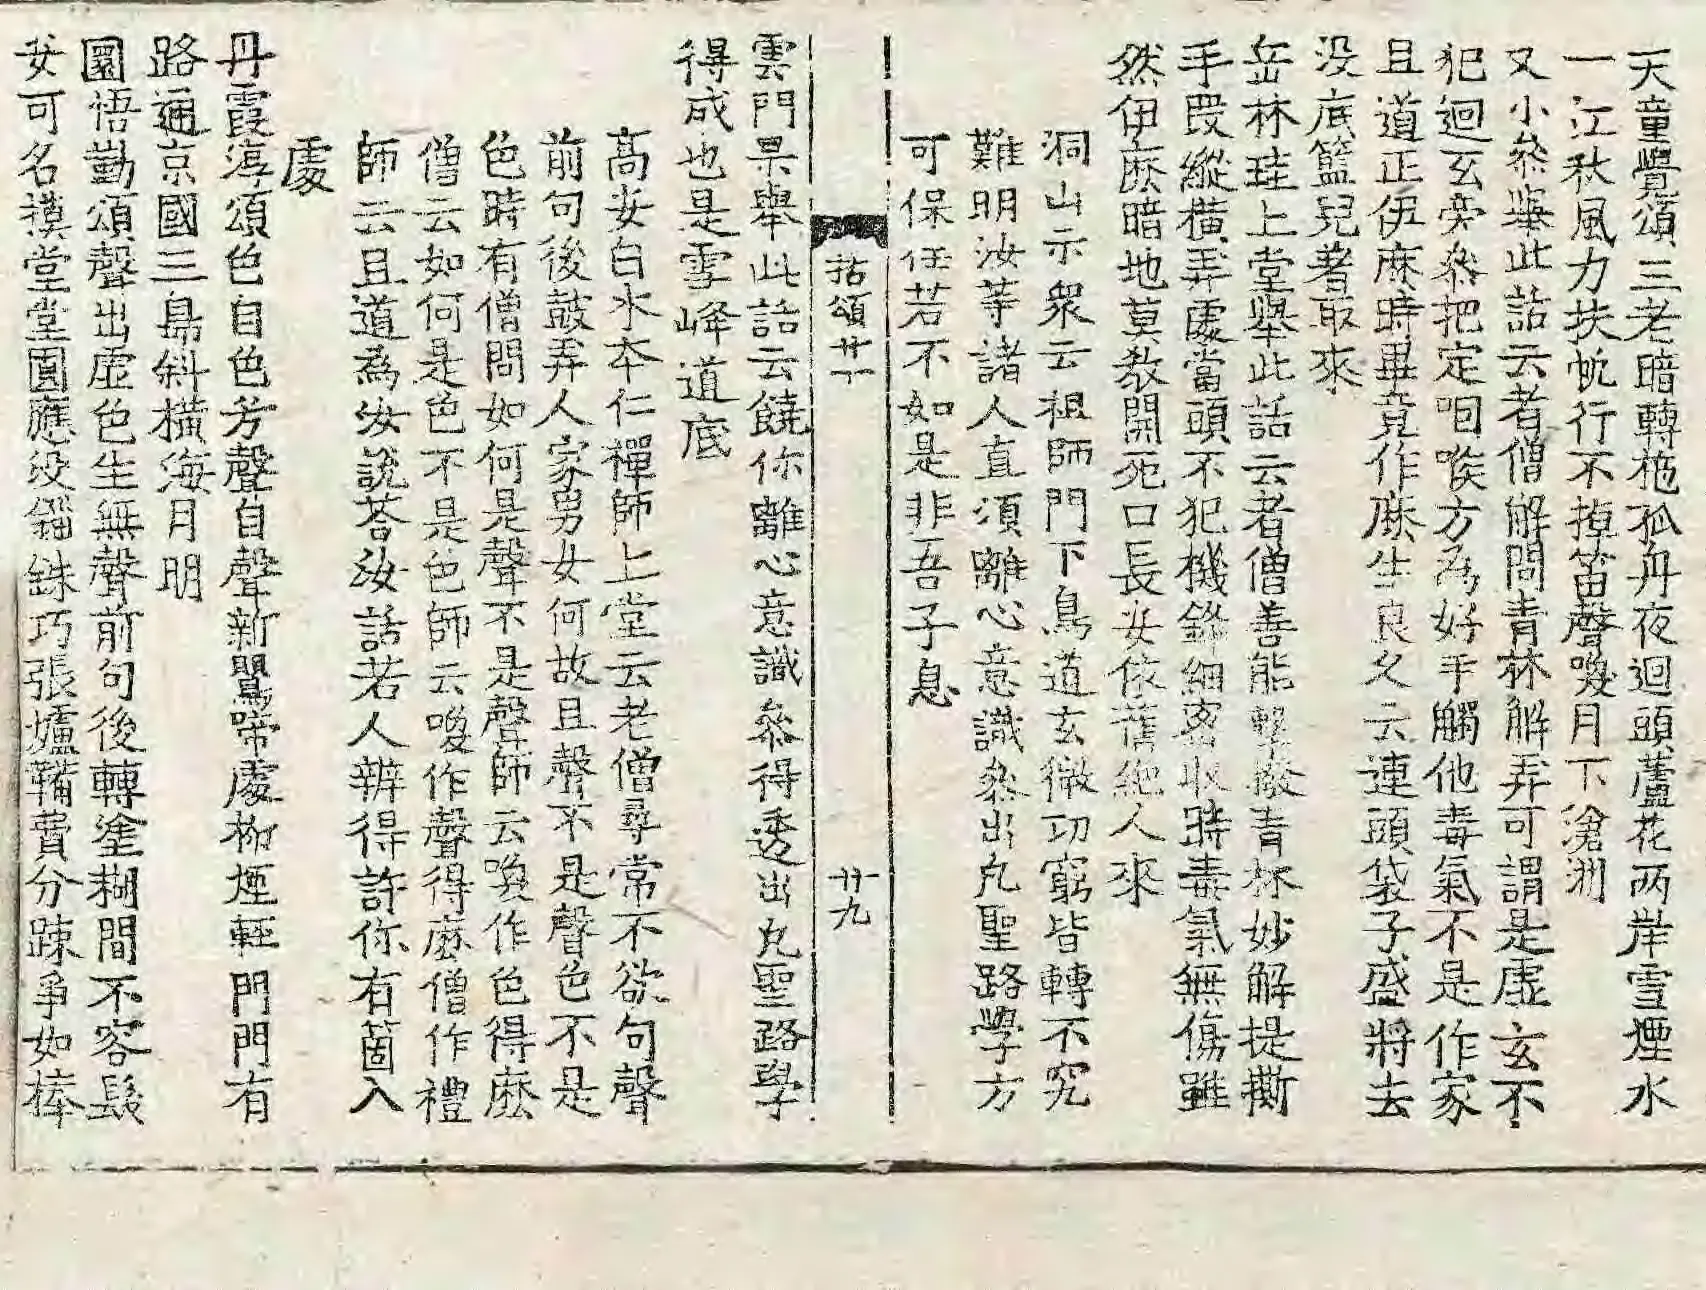 天童覺頌三老暗轉柂孤舟夜迴頭蘆花两岸雪煙水
一江秋風力扶帆行不掉笛聲喚月下滄洲
又小叅擧此話云者僧解問青林解弄可謂是虛玄不
犯迴玄旁叅把定咽喉方爲好手觸他毒氣不是作家
且道正伊麽時畢竟作麽生良久云連頭袋子盛將去
没底籃兒著取來
岳林珪上堂擧此話云者僧善能擊撥青林妙解提撕
手段縱橫弄處當頭不犯機鋒細密収時毒氣無傷雖
然伊麽暗地莫教開死口長安依舊絶人來
洞山示衆云祖師門下鳥道玄微功窮皆轉不究
難明汝等諸人直須離心意識叅出凢聖路學方
可保任若不如是非吾子息
拈頌廿一
廿九
雲門杲擧此話云饒你離心意識叅得透出凢聖路學
得成也是雪峰道底
高安白水本仁禪師上堂云老僧尋常不欲句聲
前句後鼓弄人家男女何故且聲不是聲色不是
色時有僧問如何是聲不是聲師云喚作色得麽
僧云如何是色不是色師云喚作聲得麽僧作禮
師云且道爲汝說荅汝話若人辨得許你有箇入
處
丹霞淳頌色自色兮聲自聲新鸎啼處柳煙輕門門有
路通京國三島斜橫海月明
圜悟勤頌聲出虛色生無聲前句後轉塗糊間不容髮
安可名摸堂堂圓應没錙銖巧張爐鞴費分踈爭如棒